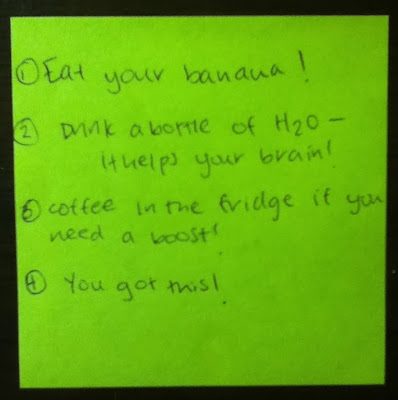 ① Eat your banana!
② Drink a bottle of H2O –
it helps your brain!
③ coffee in the fridge if you
need a boost!
④ You got this!